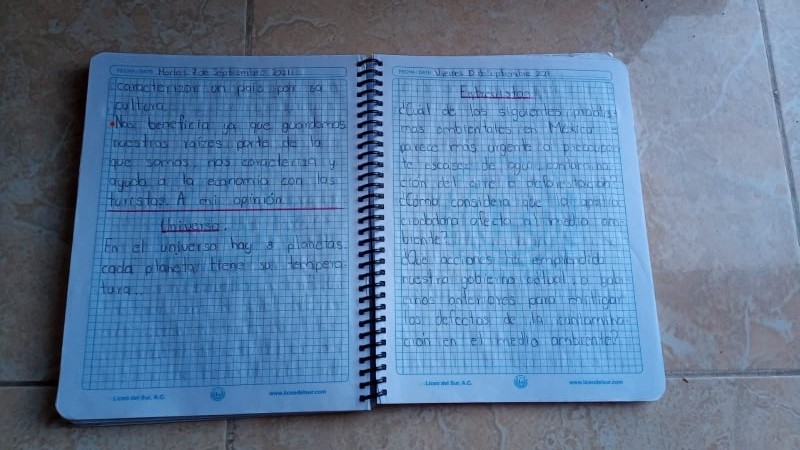 FECHA / DATE Martes 7 de Septiembre 2021
caracterizar un país por su
cultura.
• Nos beneficia ya que guardamos
nuestras raíces, parte de lo
que somos, nos caracteriza y
ayuda a la economía con los
turistas. A mi opinión
Universo.
En el universo hay 8 planetas
cada planeta tiene su tempera-
tura...
Liceo del Sur, A.C.
www.liceodelsur.com
FECHA / DATE Viernes 10 de Septiembre 2021
Entrevista
¿Cual de los siguientes proble-
mas ambientales en México
parece mas urgente o preocupan-
te escases de agua, contamina-
ción del aire o deforestación
¿Como considera que la apatia
ciudadana afecta al medio am-
biente?
¿Que acciones ha emprendido
nuestro gobierno actual o gobi-
ernos anteriores para mitigar
los defectos de la contamina-
ción en el medio ambiente?
Liceo del Sur, A.C.
www.liceodelsur.com